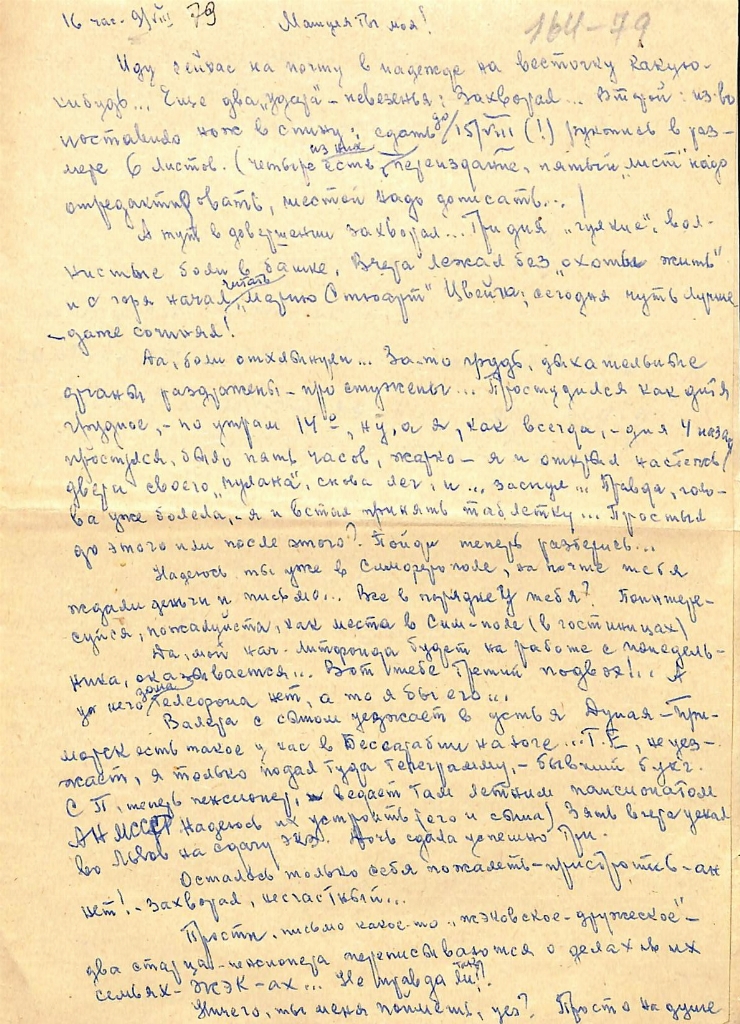 16 час. 9/VIII 79 Машуля Ты моя! 164-79
Иду сейчас на почту в надежде на весточку какую-
нибудь... Еще два „удара" - невезенья: Захворал... Второй: из-во
поставило нож в спину: сдать до 15/VIII (!) рукопись в раз-
мере 6 листов. (четыре из них есть, переиздание, пятый „лист" надо
отредактировать, шестой надо дописать...!
А тут в довершении захворал... Три дня „гулкие", вол-
нистые боли в башке, Вчера лежал без „охоты жить"
и с горя начал читать „Марию Стюарт" Цвейга; сегодня чуть лучше
- даже сочинял!
Да, боли отхлынули... За-то грудь, дыхательные
органы раздражены - простужены... Простудился как дитя
грудное, - по утрам 14°, ну, а я, как всегда, - дня 4 назад
простулся, было пять часов, жарко - я и открыл настежь
двери своего „чулана", снова лег, и... заснул... Правда, голо-
ва уже болела, - я и встал принять таблетку... Простыл
до этого или после этого? Пойди теперь разберись...
Надеюсь ты уже в Симферополе, на почте тебя
ждали деньги и письмо... Все в порядке у тебя? Поинтере-
суйся, пожалуйста, как места в Сим-поле (в гостиницах)
Да, мой нач. Литфонда будет на работе с понедель-
ника, оказывается... Вот тебе третий подвох!.. А
у него дома телефона нет, а то я бы его...
Валера с сыном уезжает в устья Дуная - При-
морск есть такое у нас в Бессарабии на юге... Т.Е, не уез-
жает, я только подал туда телеграмму, - бывший бухг.
С П, теперь пенсионер, ведает там летним пансионатом
АН МССР Надеюсь их устроить (его и сына) Зять вчера уехал
во Львов на сдачу экз. Дочь сдала успешно три.
Осталось только себя пожалеть - пристроить - ан
нет! - Захворал, несчастный...
Прости, письмо какое-то „жэковское-дружеское" -
два старца-пенсионера переписываются о делах в их
семьях - ЖЭК-ах... Не правда ли!?
Ничего, ты меня поймешь, да? Просто на душе